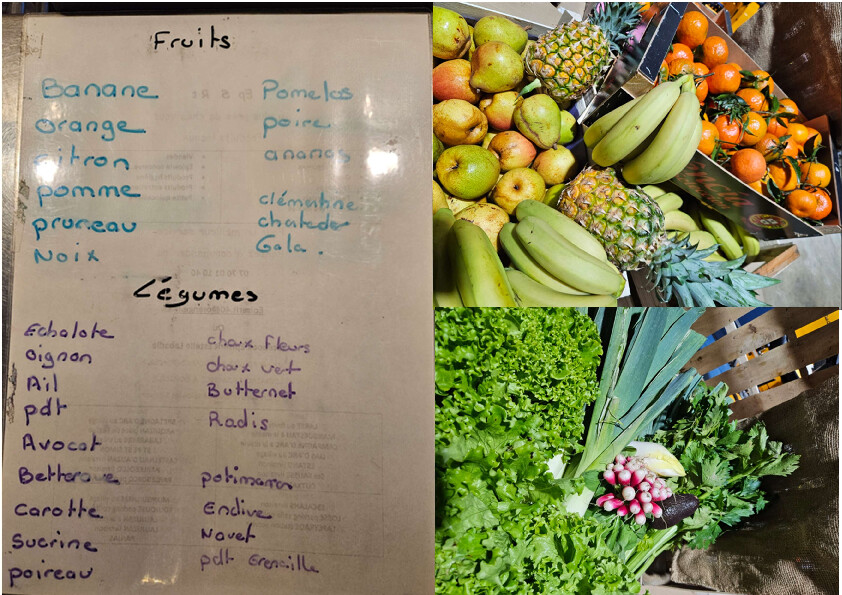 Fruits
Banane
orange
citron
pomme
pruneau
Noix
Pomelos
poire
ananas
clémentine
chateder
Gala.
Légumes
Echalote
oignon
Ail
pdt
Avocat
Betterave
carotte
Sucrine
poireau
choux Fleurs
choux vert
Butternet
Radis
potimaron
Endive
Navet
pdt Grenaille